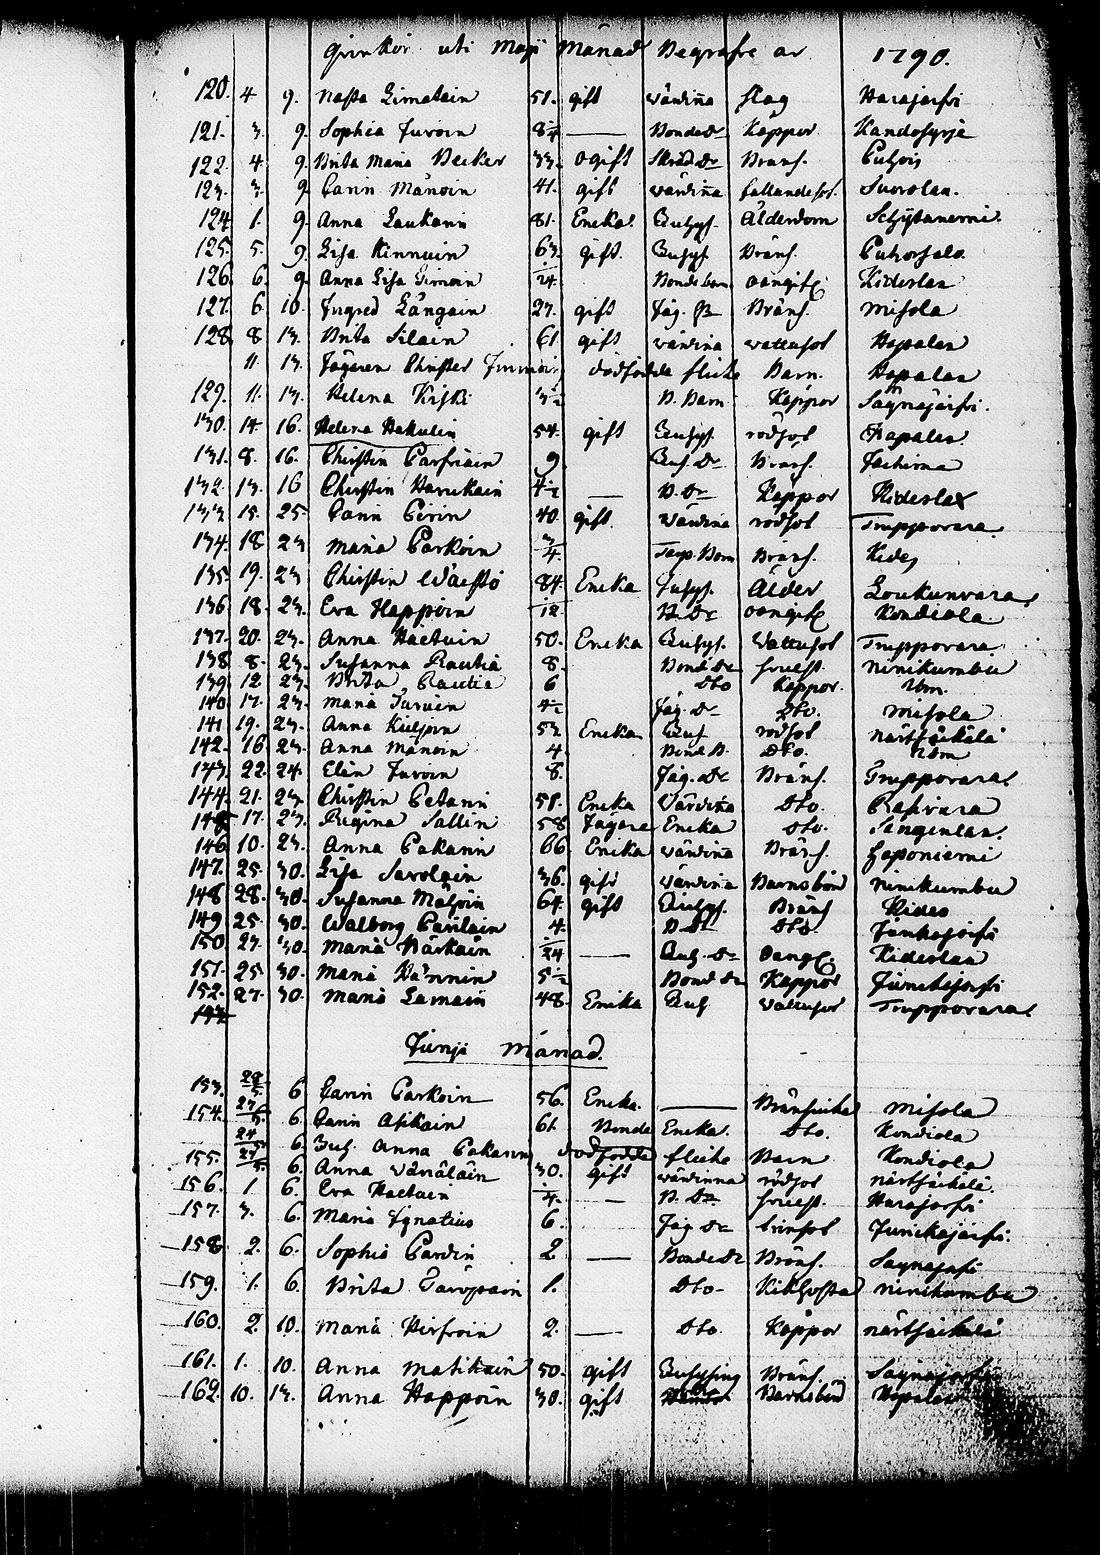 qvinkör uti Maji Månad Begrafne år 1790.
120. 4 9. Nasta Limatain 51. gift värdiña slag Harajarfvi
121. 3. 9. Sophia Turoin Bonde Dr Koppor Kandosyrja
122. 4 9. Brita Maria Becker 33. ogift Bränf. Puhois
123. 3. 9. Carin Mänoin 41. gift värdiña fallandesot. Suorolax.
124 1. 9. Anna Laukain 81. Encka. Inhys. Ålderdom
125. 5. 9. Lisa Kinnuin 63. gift. Inhys. Bränf. Puhossalo.
126 6. 9. Anna Lisa Simoin 1/24. Bonde barn oangif. Kideslax
127. 6 10. Ingred Längain 27. gift Jäg. Bränf. Misola
128. 8 13. Brita Silain 61 gift värdina vattusot Hapalax
11. 13. Jägaren Christer dödfödde flicke Barn. Hapalax
129. 11. 13. Helena Kiski 3½ B. Barn Koppor Saynäjärfvi.
130. 14. 16. Helena Hakulin 54. gift Inhys. rödsot Hapalax.
131. 8. 16. Christin Parfiain 9 Inh. Dr Bränf.
132. 13. 16 Christin Harukain 4½ — B. Dr Koppor Kideslax
133 15. 25. Carin Pirin 40. gift. Värdina rödsot Truppovara.
134. 18 23 Maria Parkoin 3/4. Torp. Barn Bränf. Kides
135. 19. 23 Christin Wäestö 84. Encka Inhys. Ålder Loukunvara.
136. 18. 23. Eva Happoin 12. B. Dr oangif Kondiola.
137. 20. 23. Anna Haetuin 50. Encka Inhys. Vattusot Truppovara.
138 8. 23. Susanna Rautia 8. Bond Dr ninikumbu
139. 12 23. Brita Rautia 6 Dto Koppor. Ibm.
140 17. 23. Maria Turuin 4½ Jäg. Dr Dto. Misola
141 19. 23. Anna Kuljoin 53. Encka Inh rödsot närsjäkälä
142. 16 23. Anna Mänoin 4. Bond B. Dto. Ibm
143. 22. 24. Elin Turoin 8. Jäg. Dr Bränf. Truppovara
144. 21. 23. Christin Petain 58. Encka Värdiña Dto. Rasivara
145 17. 23. Regina Sallin 58 Jägare Encka Dto. Sangenlax.
146 10. 23. Anna Pakarin 66. Encka värdiña Bränf. Haponiemi
147. 25. 30. Lisa Savolain 36. gift värdina Barnsbörd ninikumbu
148 28. 30. Susanna Maljoin 64. gift Inhys. Bränf Kides
149 25. 30. Walborg Parilain 4. B. Dr Dto.
150. 27. 30. Maria Härkäin 1/24 — Inh. Dr Oangf. Kideslax
151. 25. 30. Maria Hännin 5½ Bond Dr Koppor
152. 27. 30. Maria Lamain 48. Encka Inh. Vattusot Truppovara.
153.
Junji Månad.
153. 29/5. 6. Carin Parkoin 56. Encka. — Bränsiuka Misola
154. 27/5. 6. Carin Asikain 61. Bonde Encka. Dto. Kondiola
24/5. 6. Inh. Anna Pakarin dödfödde flicke Barn Kondiola
155. 27/5. 6. Anna Vänäläin 30. gift värdinna rödsot närsjäkälä.
156. 1. 6. Eva Haetuin 1/4. — B. Dr Harajarfvi
157. 3. 6. Maria Ignatius 6. Jäg Dr
158. 2. 6. Sophia Pardin 2. — Bonde Dr Bränf. Saynajärfvi
159. 1. 6. Brita Taropain 1. Dto Kikhosta ninikumbu
160. 2. 10. Maria Hirfvoin 2. — Dto. Koppor närsjäkälä
161. 1. 10. Anna Matikain 50. gift Inhysing Bränf. Saynajärfvi
162. 10. 13. Anna Happoin 30. gift Barnsbörd Hapalax